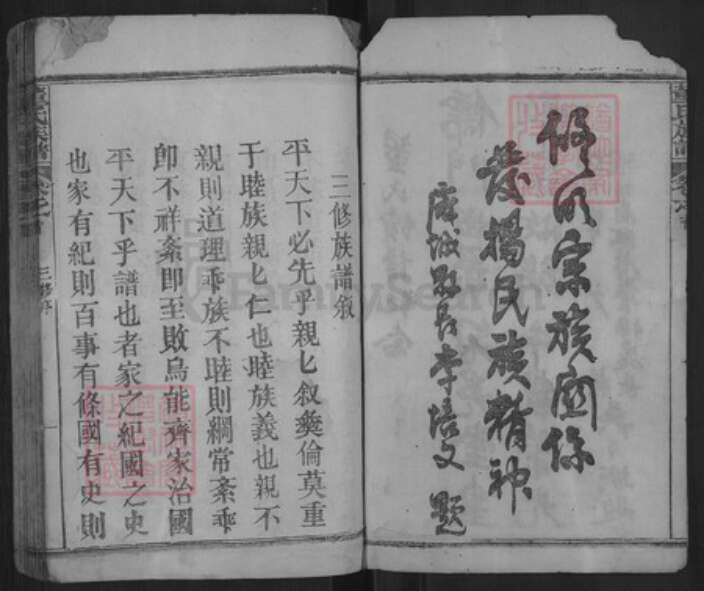 修明宗族關係
發揚民族精神
李培文題
三修族譜敘
平天下必先乎親匕叙彝倫莫重
于睦族親匕仁也睦族義也親不
親則道理乖族不睦則綱常紊乖
卽不祥紊即至敗烏能齊家治國
平天下乎譜也者家之紀國之史
也家有紀則百事有條國有史則
氏族譜
FamilySearch